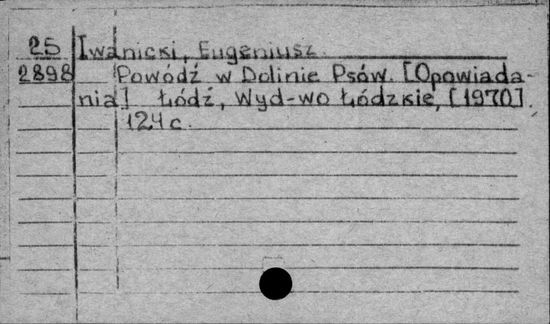 25 Iwanicki, Eugeniusz.
2898 Powódź w Dolinie Psów. [Opowiada-
nia] Łódź, Wyd-wo Łódzkie, [1970].
124 c.